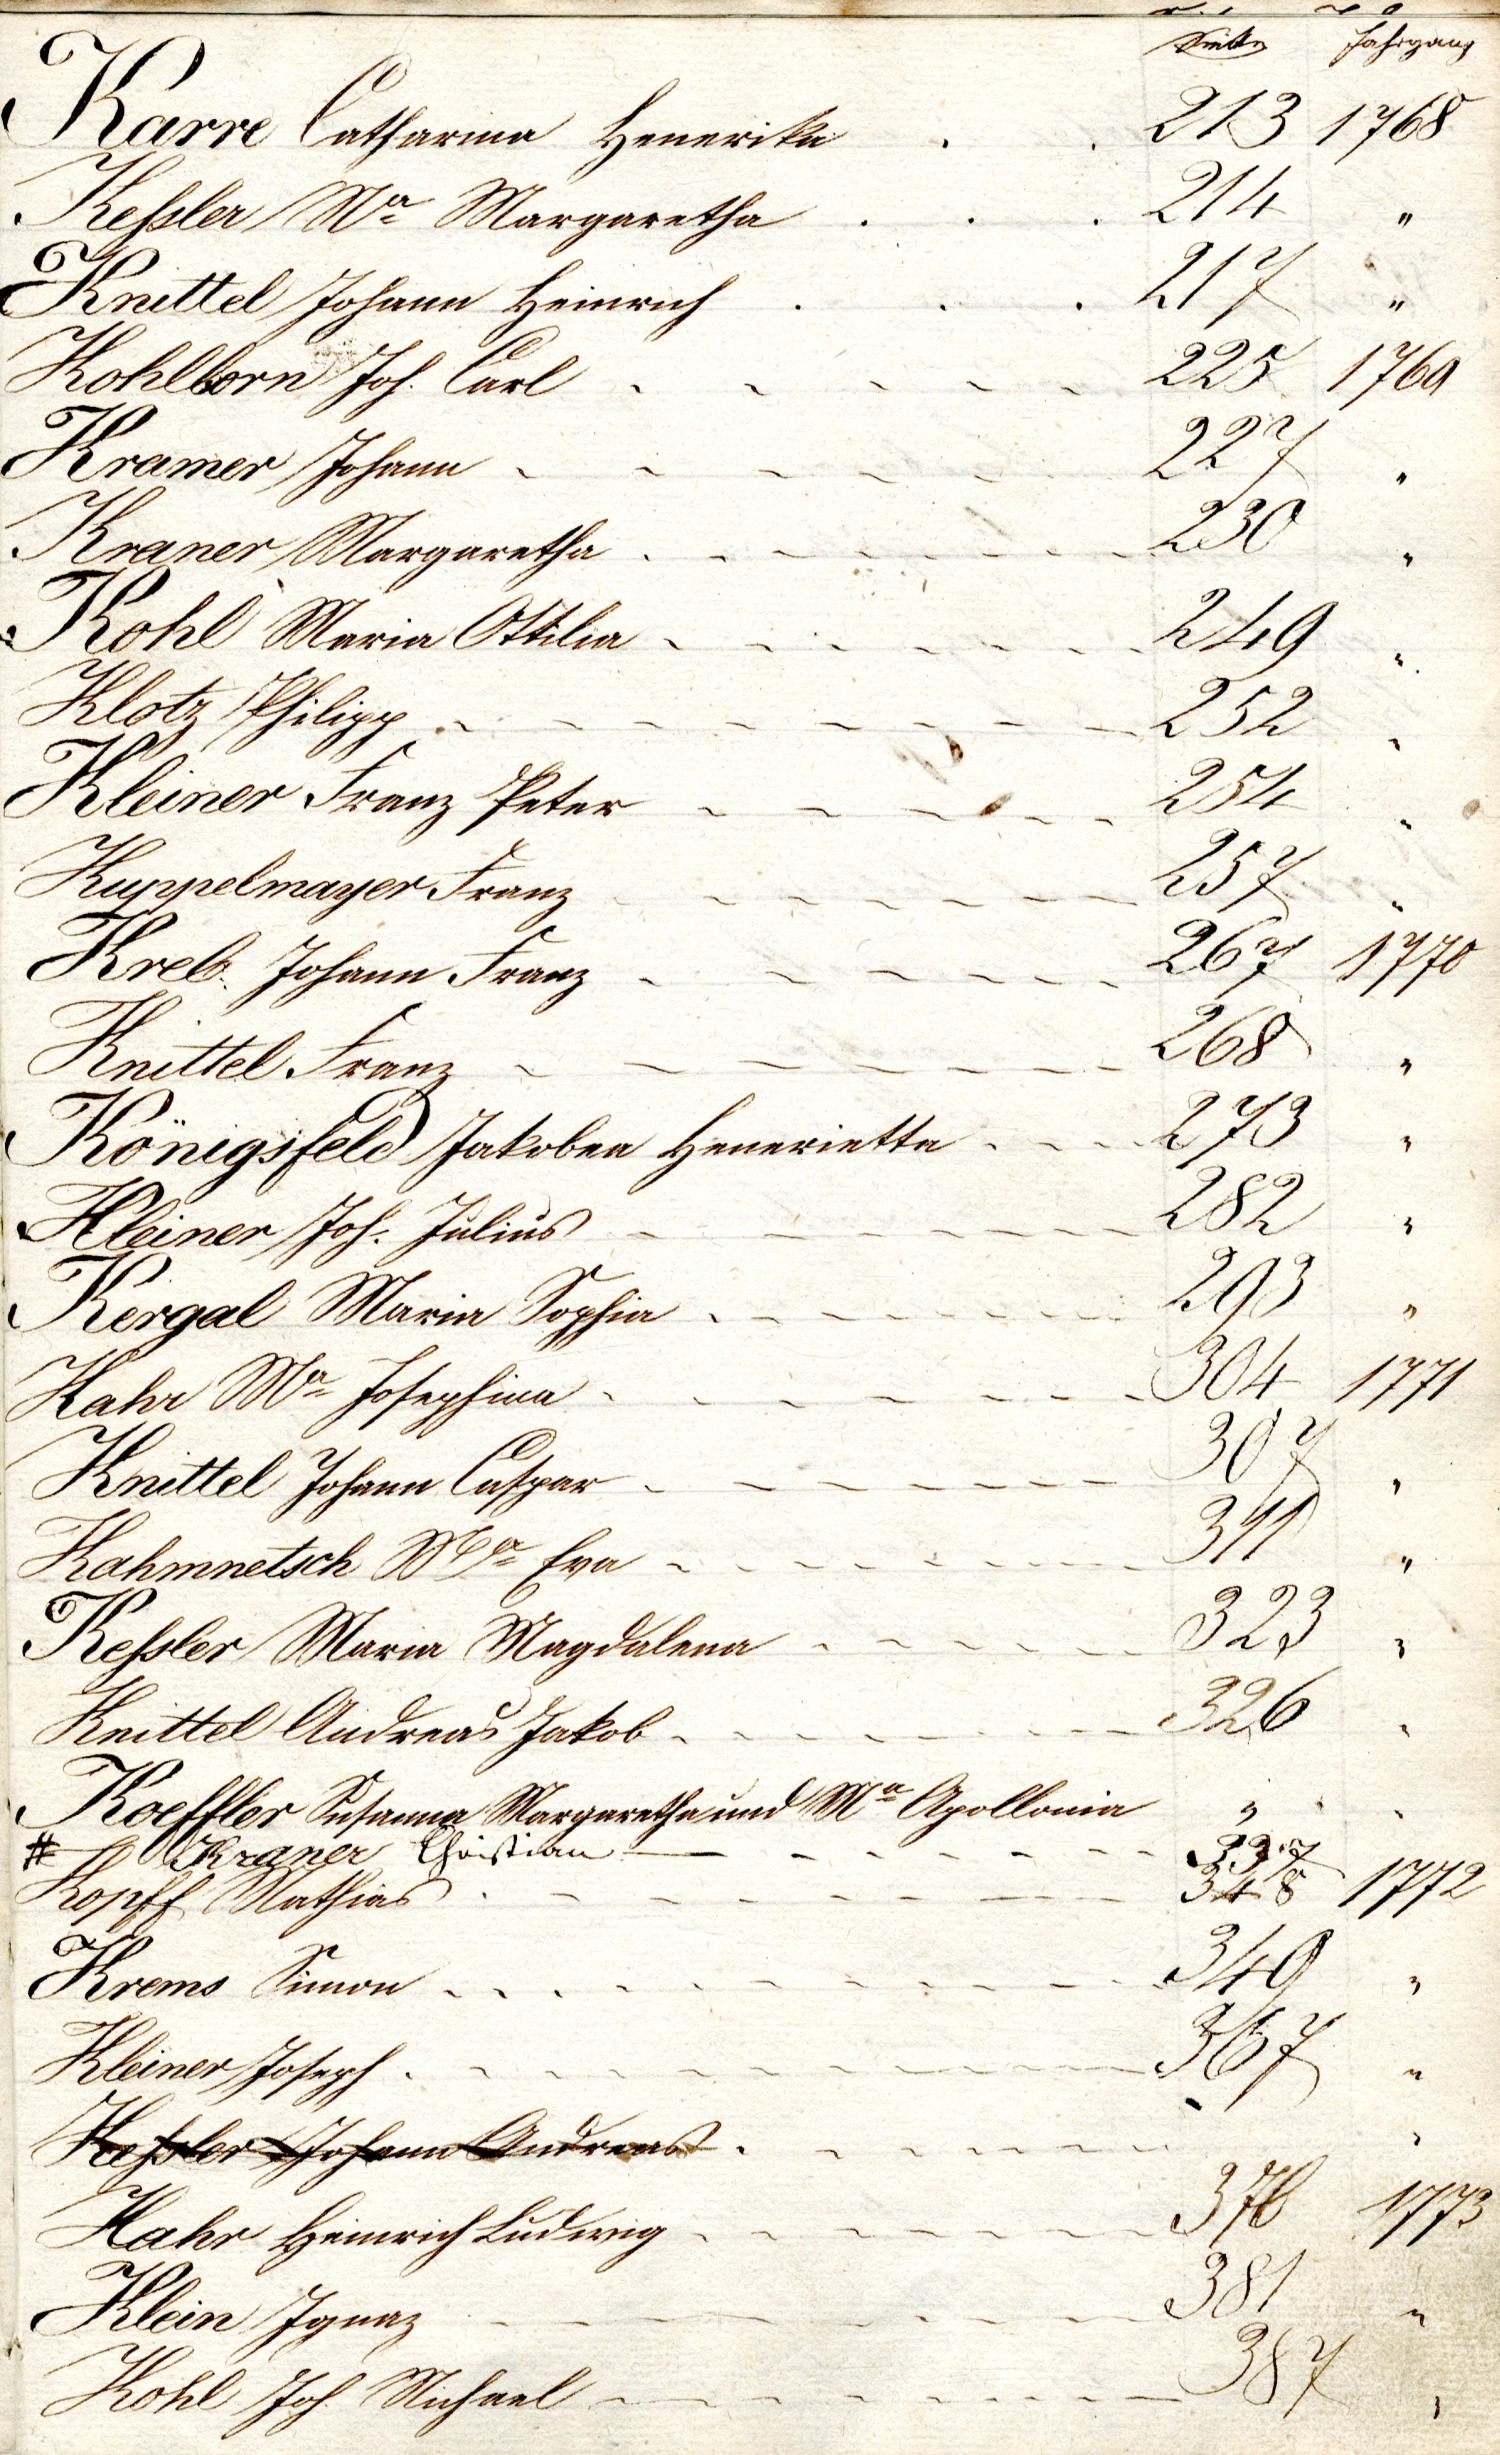 Seite Jahrgang
Karre Catharina Henerika . . 213 1768
Keßler Ma Margaretha . . . 214 "
Knittel Johann Heinrich . . . 217 "
Kohlborn Joh. Carl 225 1769
Kramer Johann 227 "
Kraner Margaretha 230 "
Kohl Maria Ottilia 249 "
Klotz Philipp 252 "
Kleiner Franz Peter 254 "
Kuppelmayer Franz 257 "
Kreb. Johann Franz 267 1770
Knittel Franz 268 "
Königsfeld Jakobea Henerietta 273 "
Kleiner Joh. Julius 282 "
Kergal Maria Sophia 293 "
Kahr Ma Josephina 304 1771
Knittel Johann Caspar 307 "
Kahmnetsch Ma Eva 311 "
Keßler Maria Magdalena 323 "
Knittel Andreas Jakob 326 "
Koeffler Susanna Margaretha und Ma Apollonia " "
# Kraner Christian 337
Kopff Mathias 348 1772
Krems Simon 349 "
Kleiner Joseph 367 "
Keßler Johann Andreas "
Kahr Heinrich Ludwig 376 1773
Klein Ignaz 381 "
Kohl Joh. Michael 387 "